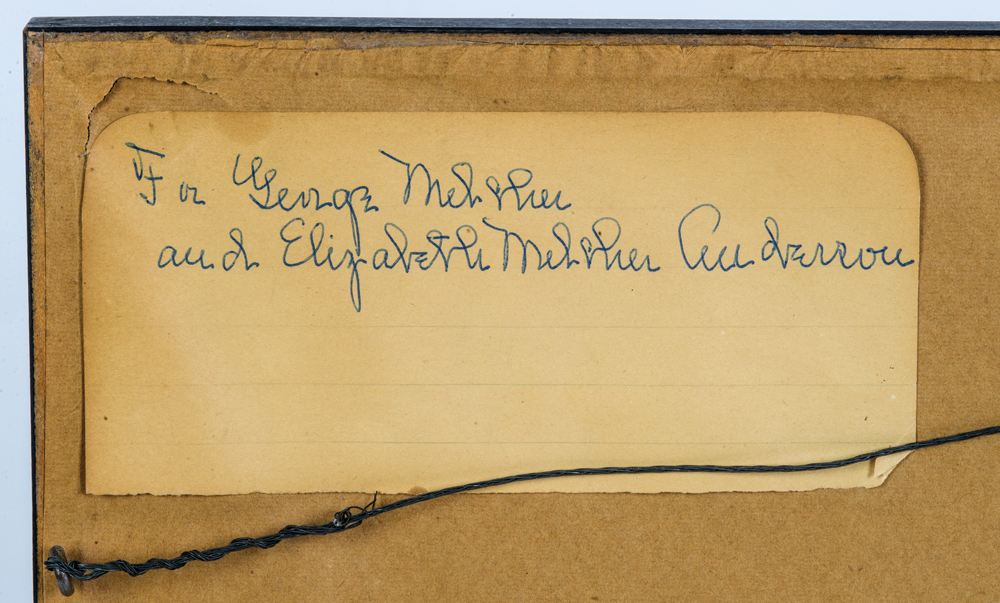 For George Melcher
and Elizabeth Melcher Anderson